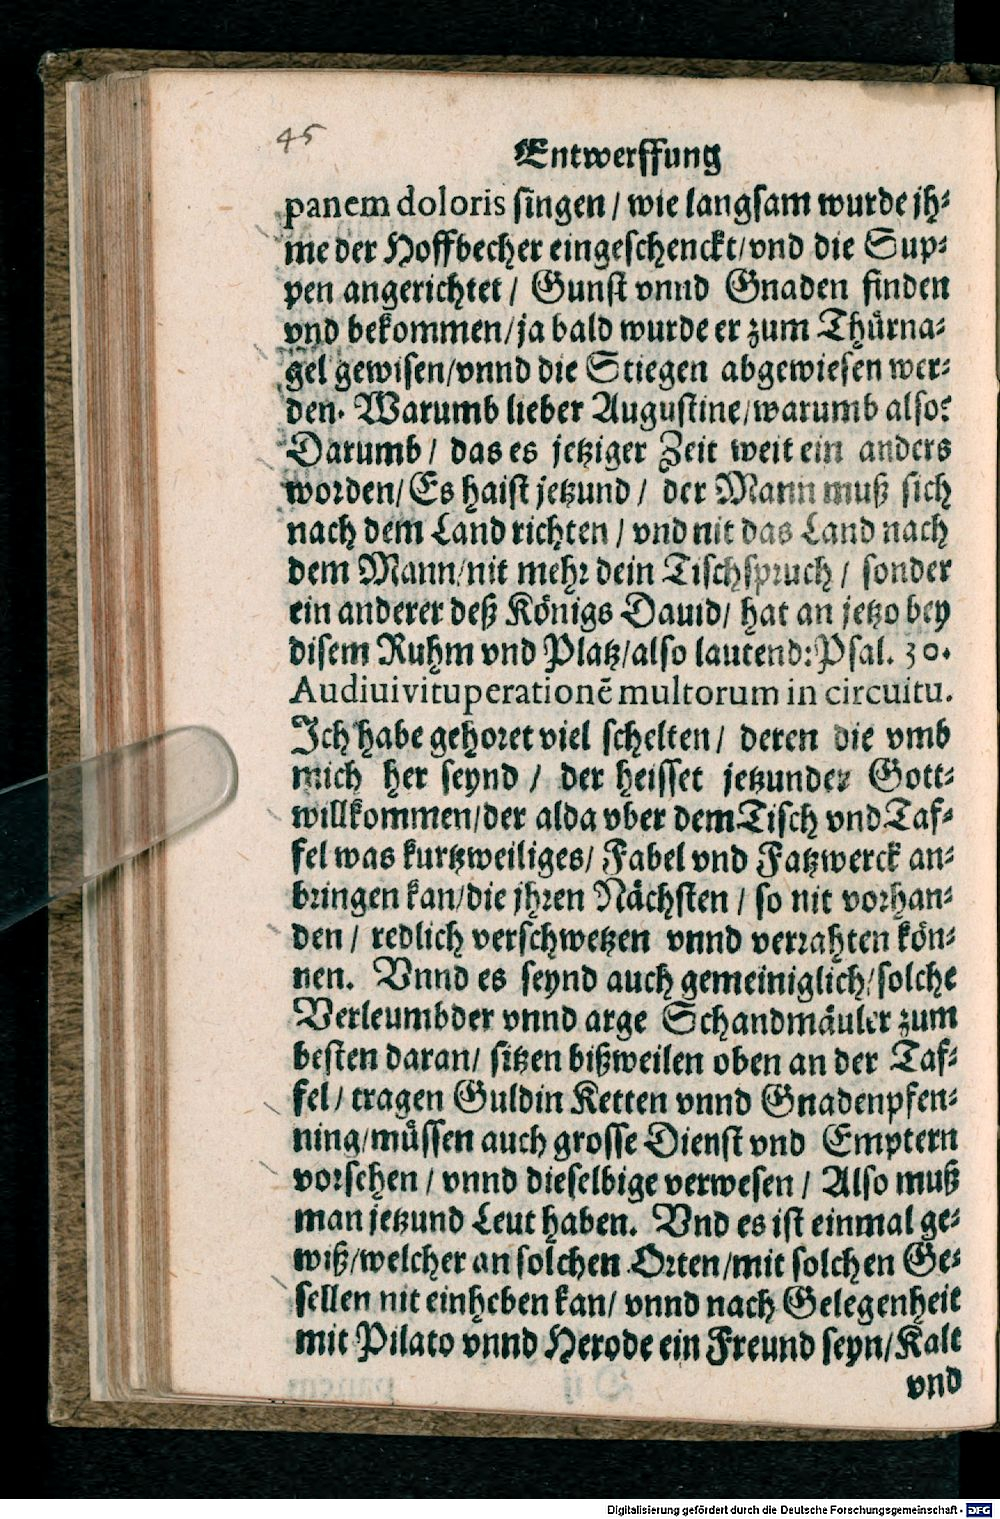 45
Entwerffung
panem doloris singen / wie langsam wurde jh⸗
me der Hoffbecher eingeschenckt/vnd die Sup⸗
pen angerichtet / Gunst vnnd Gnaden finden
vnd bekommen/ja bald wurde er zum Thürna⸗
gel gewisen/vnnd die Stiegen abgewiesen wer⸗
den. Warumb lieber Augustine/warumb also?
Darumb / das es jetziger Zeit weit ein anders
worden/ Es haist jetzund / der Mann muß sich
nach dem Land richten / vnd nit das Land nach
dem Mann/nit mehr dein Tischspruch / sonder
ein anderer deß Königs Dauid/ hat an jetzo bey
disem Ruhm vnd Platz/also lautend: Psal. 30.
Audiui vituperationẽ multorum in circuitu.
Ich habe gehoret viel schelten / deren die vmb
mich her seynd / der heisset jetzunder Gott⸗
willkommen/der alda vber dem Tisch vnd Taf⸗
fel was kurtzweiliges/ Fabel vnd Fatzwerck an⸗
bringen kan/die jhren Nächsten / so nit vorhan⸗
den / redlich verschwetzen vnnd verrahten kön⸗
nen. Vnnd es seynd auch gemeiniglich/solche
Verleumbder vnnd arge Schandmäuler zum
besten daran/ sitzen bißweilen oben an der Taf⸗
fel / tragen Guldin Ketten vnnd Gnadenpfen⸗
ning/müssen auch grosse Dienst vnd Emptern
vorsehen / vnnd dieselbige verwesen / Also muß
man jetzund Leut haben. Vnd es ist einmal ge⸗
wiß/welcher an solchen Orten/mit solchen Ge⸗
sellen nit einheben kan/ vnnd nach Gelegenheit
mit Pilato vnnd Herode ein Freund seyn/Kalt
vnd
Digitalisierung gefördert durch die Deutsche Forschungsgemeinschaft - DFG